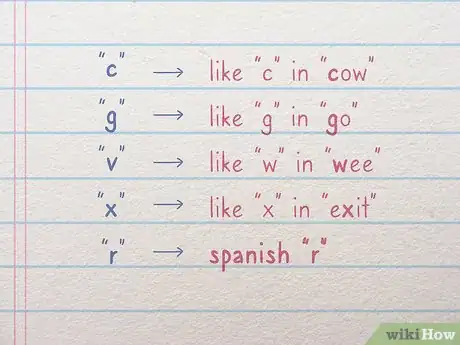 "c" → like "c" in "cow"
"g" → like "g" in "go"
"v" → like "w" in "wee"
"x" → like "x" in "exit"
"r" → spanish "r"
wikiHow